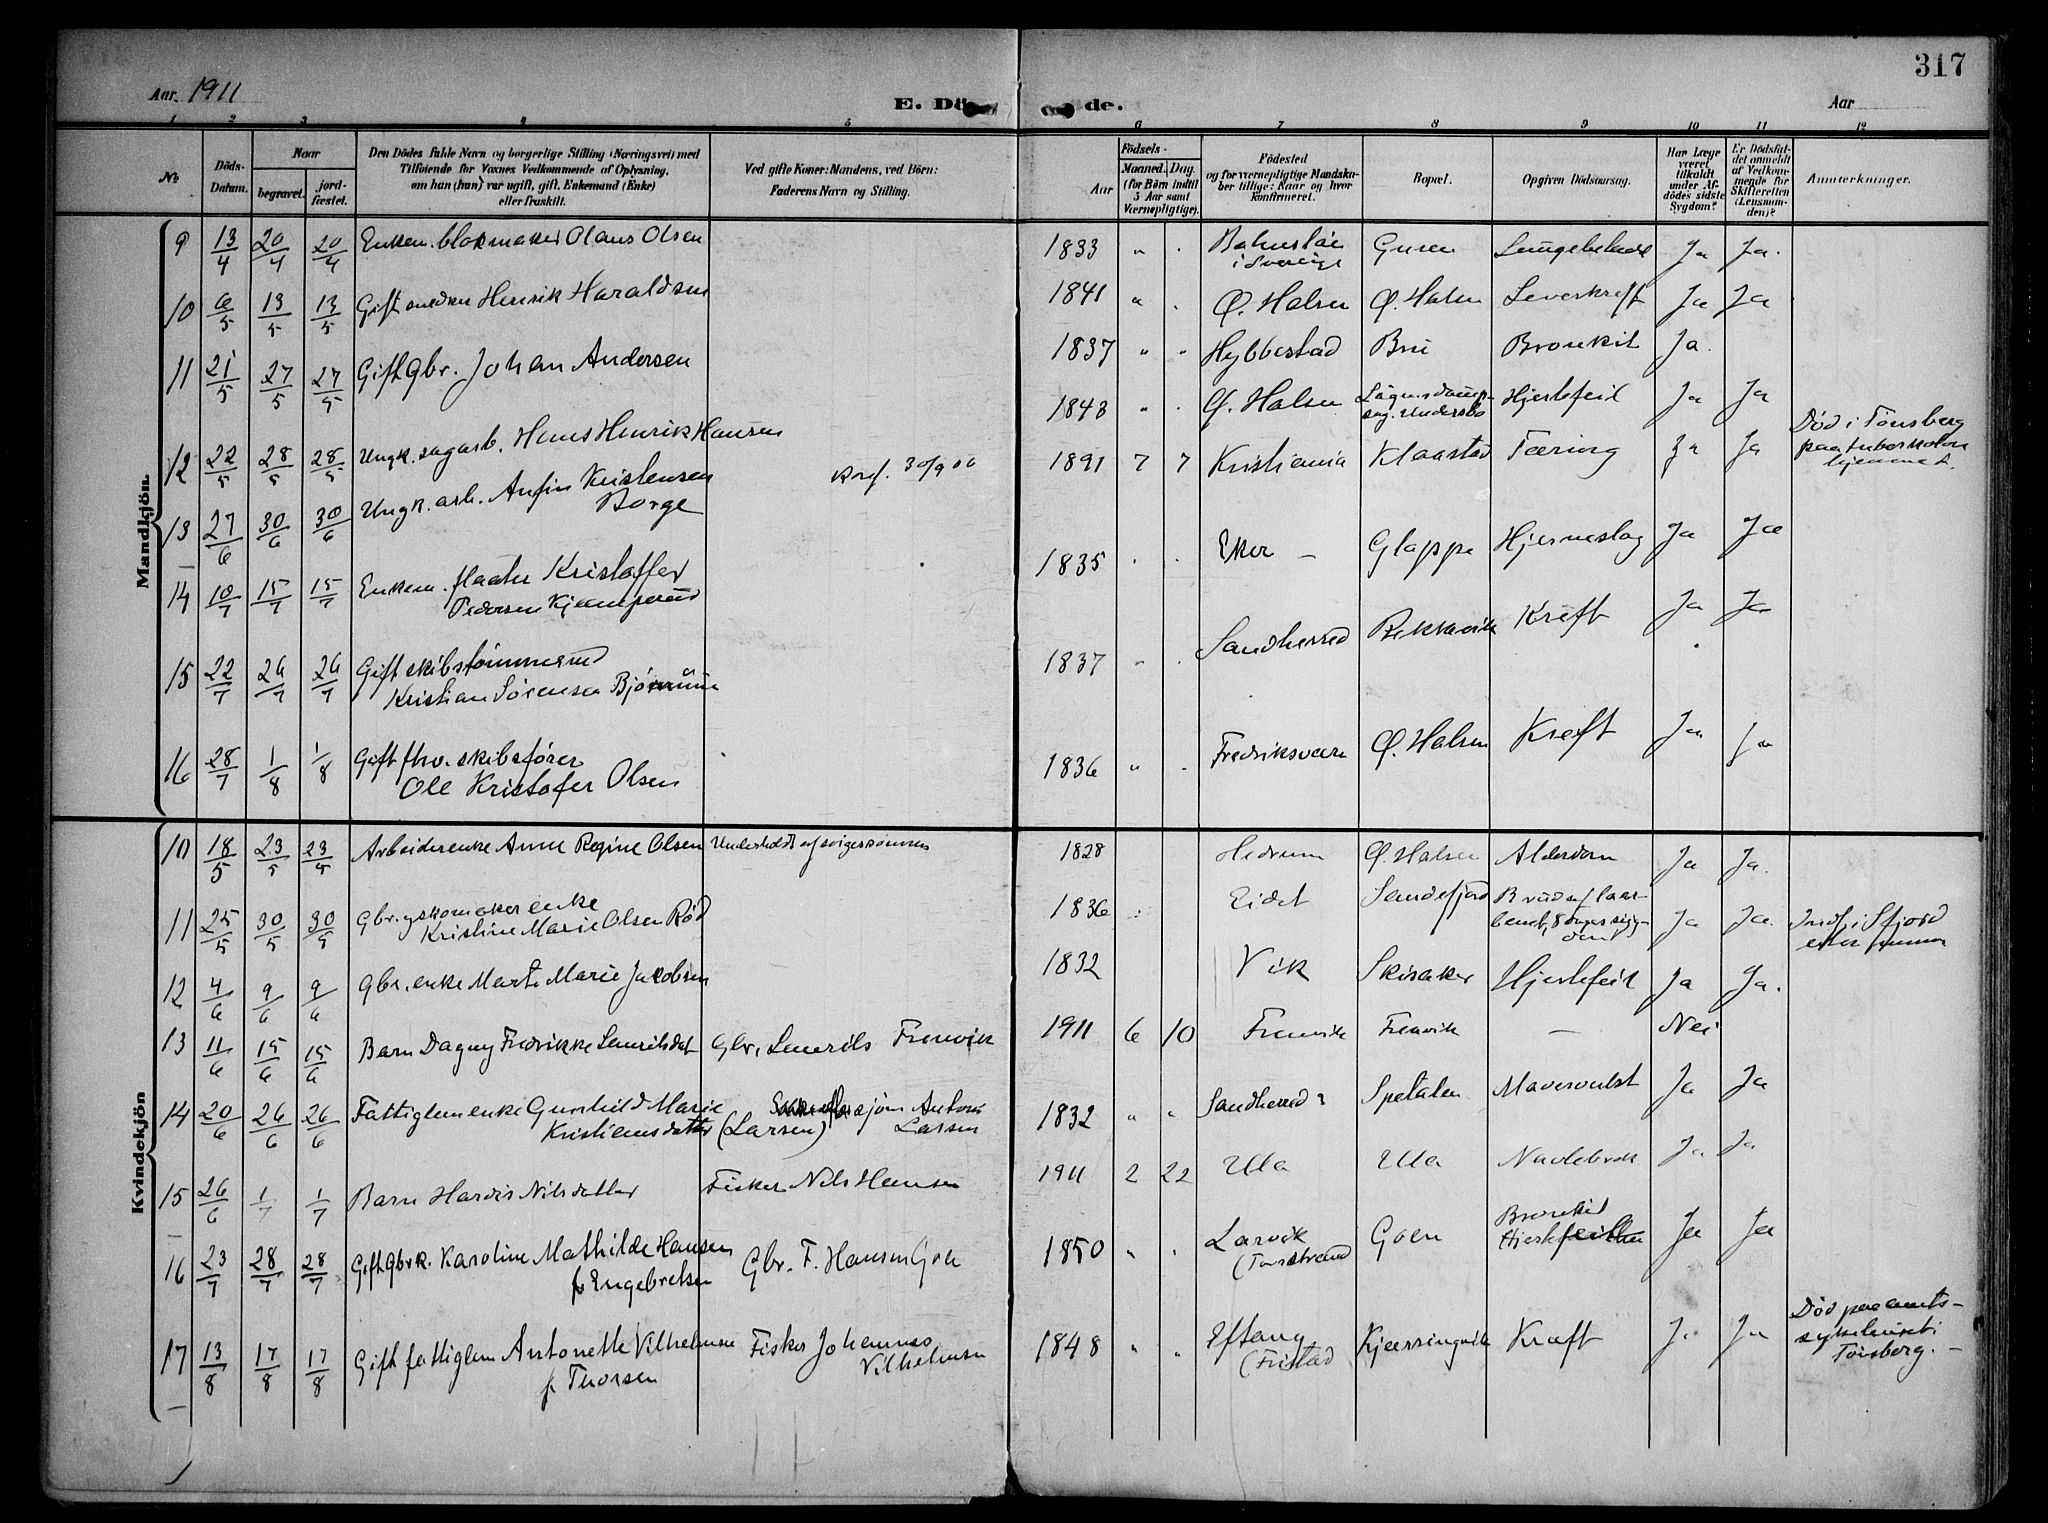 317
Aar. 1911
E. Dö de.
Aar
1 2 3 4 5 6 7 8 9 10 11 12
No
Döds-Datum.
Naar
begravet.
jord-fæstet.
Den Dödes fulde Navn og borgerlige Stilling (Næringsvei) med
Tilföiende for Voxnes Vedkommende af Oplysning,
om han (hun) var ugift, gift, Enkemand (Enke)
eller fraskilt.
Ved gifte Koner: Mandens, ved Börn:
Faderens Navn og Stilling.
Födsels-
Aar
Maaned. Dag.
(for Börn indtil
5 Aar samt
Værnepligtige).
Födested
og for værnepligtige Mandska-
ber tillige: Naar og hvor
konfirmeret.
Bopæl.
Opgiven Dödsaarsag.
Har Læge
været
tilkaldt
under Af-
dödes sidste
Sygdom?
Er Dödsfal-
det anmeldt
af Vedkom-
mende for
Skifteretten
(Lensman-
den)?
Anmerkninger.
Mandkjön.
9 13/4 20/4 20/4 Enkem. blokmaker Olaus Olsen 1833 " . i Sverige Guren Ja Ja.
10 6/5 13/5 13/5 Gift Henrik Haraldsen 1841 " . Ø. Halsen Ø. Halsen Leverkreft Ja Ja
11 21/5 27/5 27/5 Gift Gbr. Johan Andersen 1837 " " Hybbestad Bru Bronkit Ja.
12 22/5 28/5 28/5 Ungk. sagarb. Hans Henrik Hansen 1843 " . Ø. Halsen Hjertefeil Ja Ja
13 27/6 30/6 30/6 Ungk. arb. Anfin Kristensen
Borge
Konf. 30/9 06 1891 7 7 Kristiania Klaastad Tæring Ja Ja
Død i Tønsberg
paa tuberkulose
hjemmet.
14 10/7 15/7 15/7 Enkem. Kristoffer
Pedersen Kjæmperud
1835 . . Eker – Gloppe Hjerneslag Ja Ja
15 22/7 26/7 26/7 Gift skibstømmermd
Kristian Sørensen Bjørnum
1837 " . Sandherred Rekkevik Kreft Ja Ja
16 28/7 1/8 1/8 Gift fhv. skibsfører
Ole Kristofer Olsen
1836 " . Fredriksværn Ø. Halsen Kreft Ja Ja
Kvindekjön
10 18/5 23/5 23/5 Arbeiderenke Anne Regine Olsen Underholdt af svigersønnen 1828 Hedrum Ø. Halsen Alderdom Ja Ja.
11 25/5 30/5 30/5 Gbr. og skomakerenke
Kristine Marie Olsen Rød
1836 Eidet Sandefjord Brud af laar-
benet, Ja Ja. Indf. i Sfjord
12 4/6 9/6 9/6 Gbr. enke Marte Marie Jacobsen 1832 Vik Skisaker Hjertefeil Ja Ja.
13 11/6 15/6 15/6 Barn Dagny Fredrikke Lauritsdat Gbr. Laurits Frenvik 1911 6 10 Frenvik Frenvik – Nei
14 20/6 26/6 26/6 Fattiglem enke Gunhild Marie
Kristiansdatter (Larsen)
sjøm Anton
Larsen
1832 " " Sandherred Spetalen Mavesvulst Ja Ja
15 26/6 1/7 1/7 Barn Hardis Nilsdatter Fisker Nils Hansen 1911 2 22 Ula Ula Navlebrok Ja Ja
16 23/7 28/7 28/7 Gift Gbrk. Karoline Mathilde Hansen
f. Engebretsen
Gbr. F. Hansen Goen 1850 " . Larvik
(Torstrand
Goen Bronkit
Ja Ja
17 13/8 17/8 17/8 Gift fattiglem Antonette Vilhelmsen
f. Thorsen
Fisker Johannes
Vilhelmsen
1848 " " Eftang
(Fristad
Kjærringvik Kræft Ja Ja
Død paa amts-
sykehuset i
Tønsberg. –